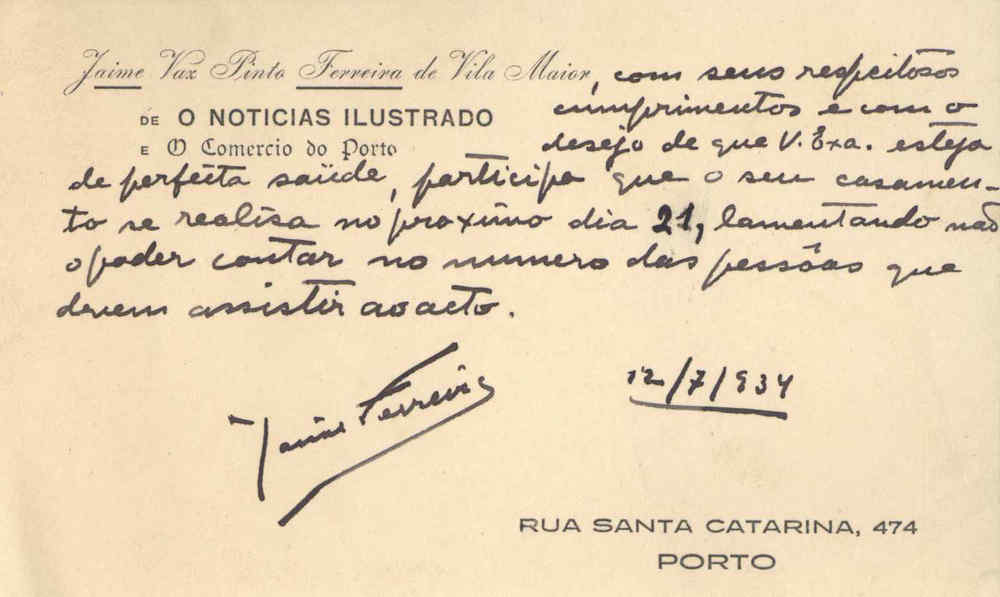 Jaime Vaz Pinto Ferreira de Vila Maior, com seus respeitosos
cumprimentos e com o
DE O NOTICIAS ILUSTRADO
E O Comercio do Porto
desejo de que V. Exa. esteja
de perfeita saüde, participa que o seu casamen-
to se realisa no proximo dia 21, lamentando não
o poder contar no numero das pessôas que
devem assistir ao acto.
Jaime Ferreira
12/7/934
RUA SANTA CATARINA, 474
PORTO